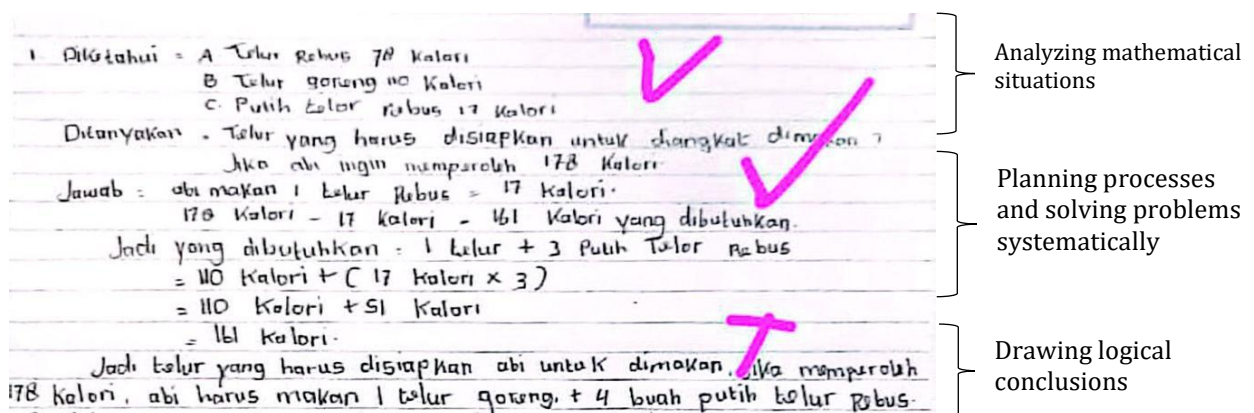 1. Diketahui = A Telur Rebus 78 Kalori
B Telur goreng 110 Kalori
C. Putih telor rebus 17 Kalori
Ditanyakan = Telur yang harus disiapkan untuk diangkat dimakan ?
Jika abi ingin memperoleh 178 Kalori.
Jawab = abi makan 1 telur Rebus = 17 Kalori.
178 Kalori - 17 Kalori = 161 Kalori yang dibutuhkan.
Jadi yang dibutuhkan = 1 telur + 3 Putih Telor Rebus
= 110 Kalori + ( 17 Kalori x 3 )
= 110 Kalori + 51 Kalori
= 161 Kalori.
Jadi telur yang harus disiapkan abi untuk dimakan, Jika memperoleh
178 Kalori, abi harus makan 1 telur goreng, + 4 buah putih telur Rebus.
Analyzing mathematical
situations
Planning processes
and solving problems
systematically
Drawing logical
conclusions